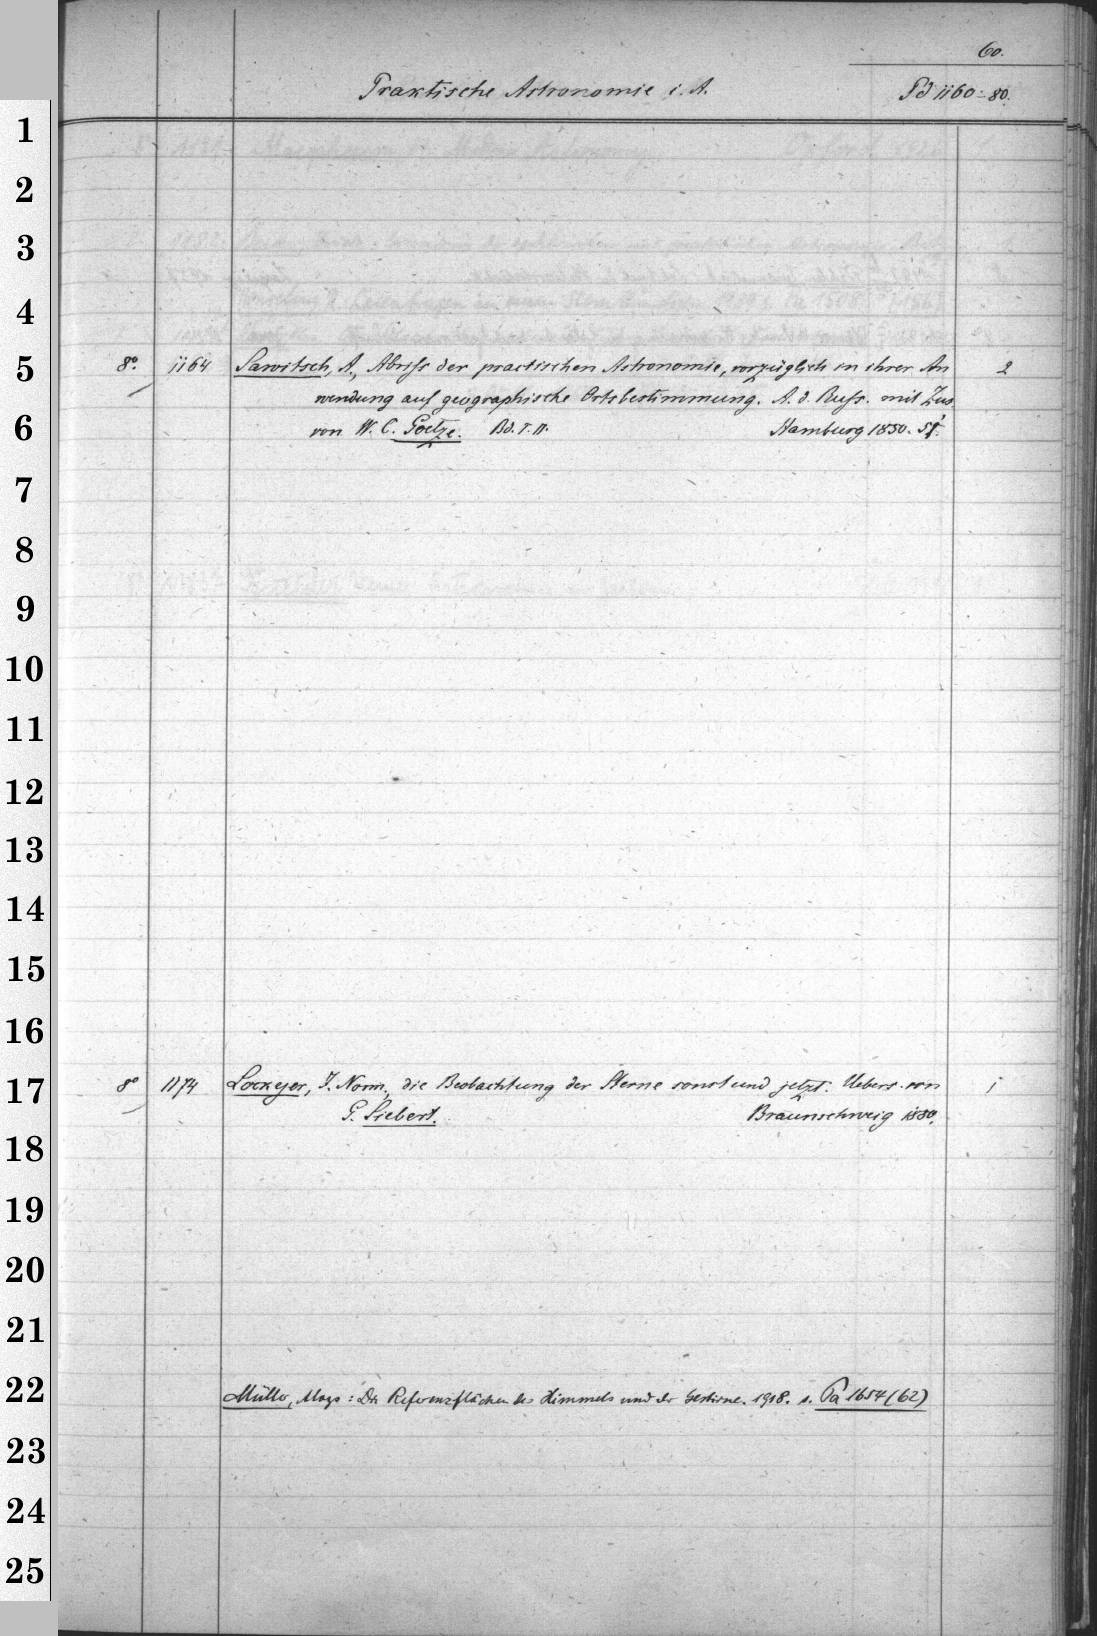 60.
Praktische Astronomie i. A.
Pd 1160-80.
1
2
3
4
5
8o. 1164 Sawitsch, A., Abriss der practischen Astronomie, vorzüglich in ihrer An 2
wendung auf geographische Ortsbestimmung. A. d. Russ. mit Zus.
6
von W. C. Goetze. Bd. I. II. Hamburg 1850. 51.
7
8
9
10
11
12
13
14
15
16
17
8o 1174 Lockyer, J. Norm., die Beobachtung der Sterne sonst und jetzt. Uebers. von 1
G. Siebert. Braunschweig 1880.
18
19
20
21
22
Müller, Aloys: Die Referenzflächen des Himmels und der Gestirne. 1918. s. Pa 1654 (62)
23
24
25